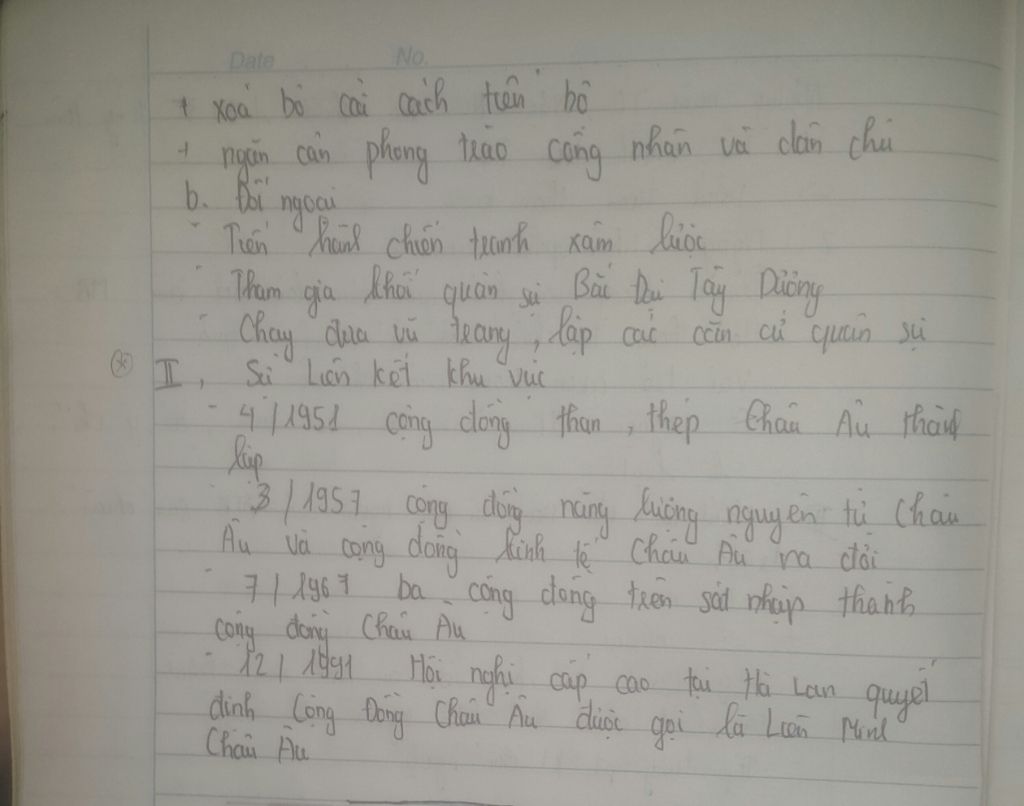 Date No.
+ xoá bỏ cải cách tiến bộ
+ ngăn cản phong trào công nhân và dân chủ
b. Đối ngoại
- Tiến hành chiến tranh xâm lược
- Tham gia khối quân sự Bắc Đại Tây Dương
- Chạy đua vũ trang, lập các căn cứ quân sự
* II, Sự Liên kết khu vực
- 4/1951 cộng đồng than, thép Châu Âu thành
lập
- 3/1957 cộng đồng năng lượng nguyên tử Châu
Âu và cộng đồng kinh tế Châu Âu ra đời
- 7/1967 ba cộng đồng trên sát nhập thành
cộng đồng Châu Âu
- 12/1991 Hội nghị cấp cao tại Hà Lan quyết
định Cộng Đồng Châu Âu được gọi là Liên Minh
Châu Âu